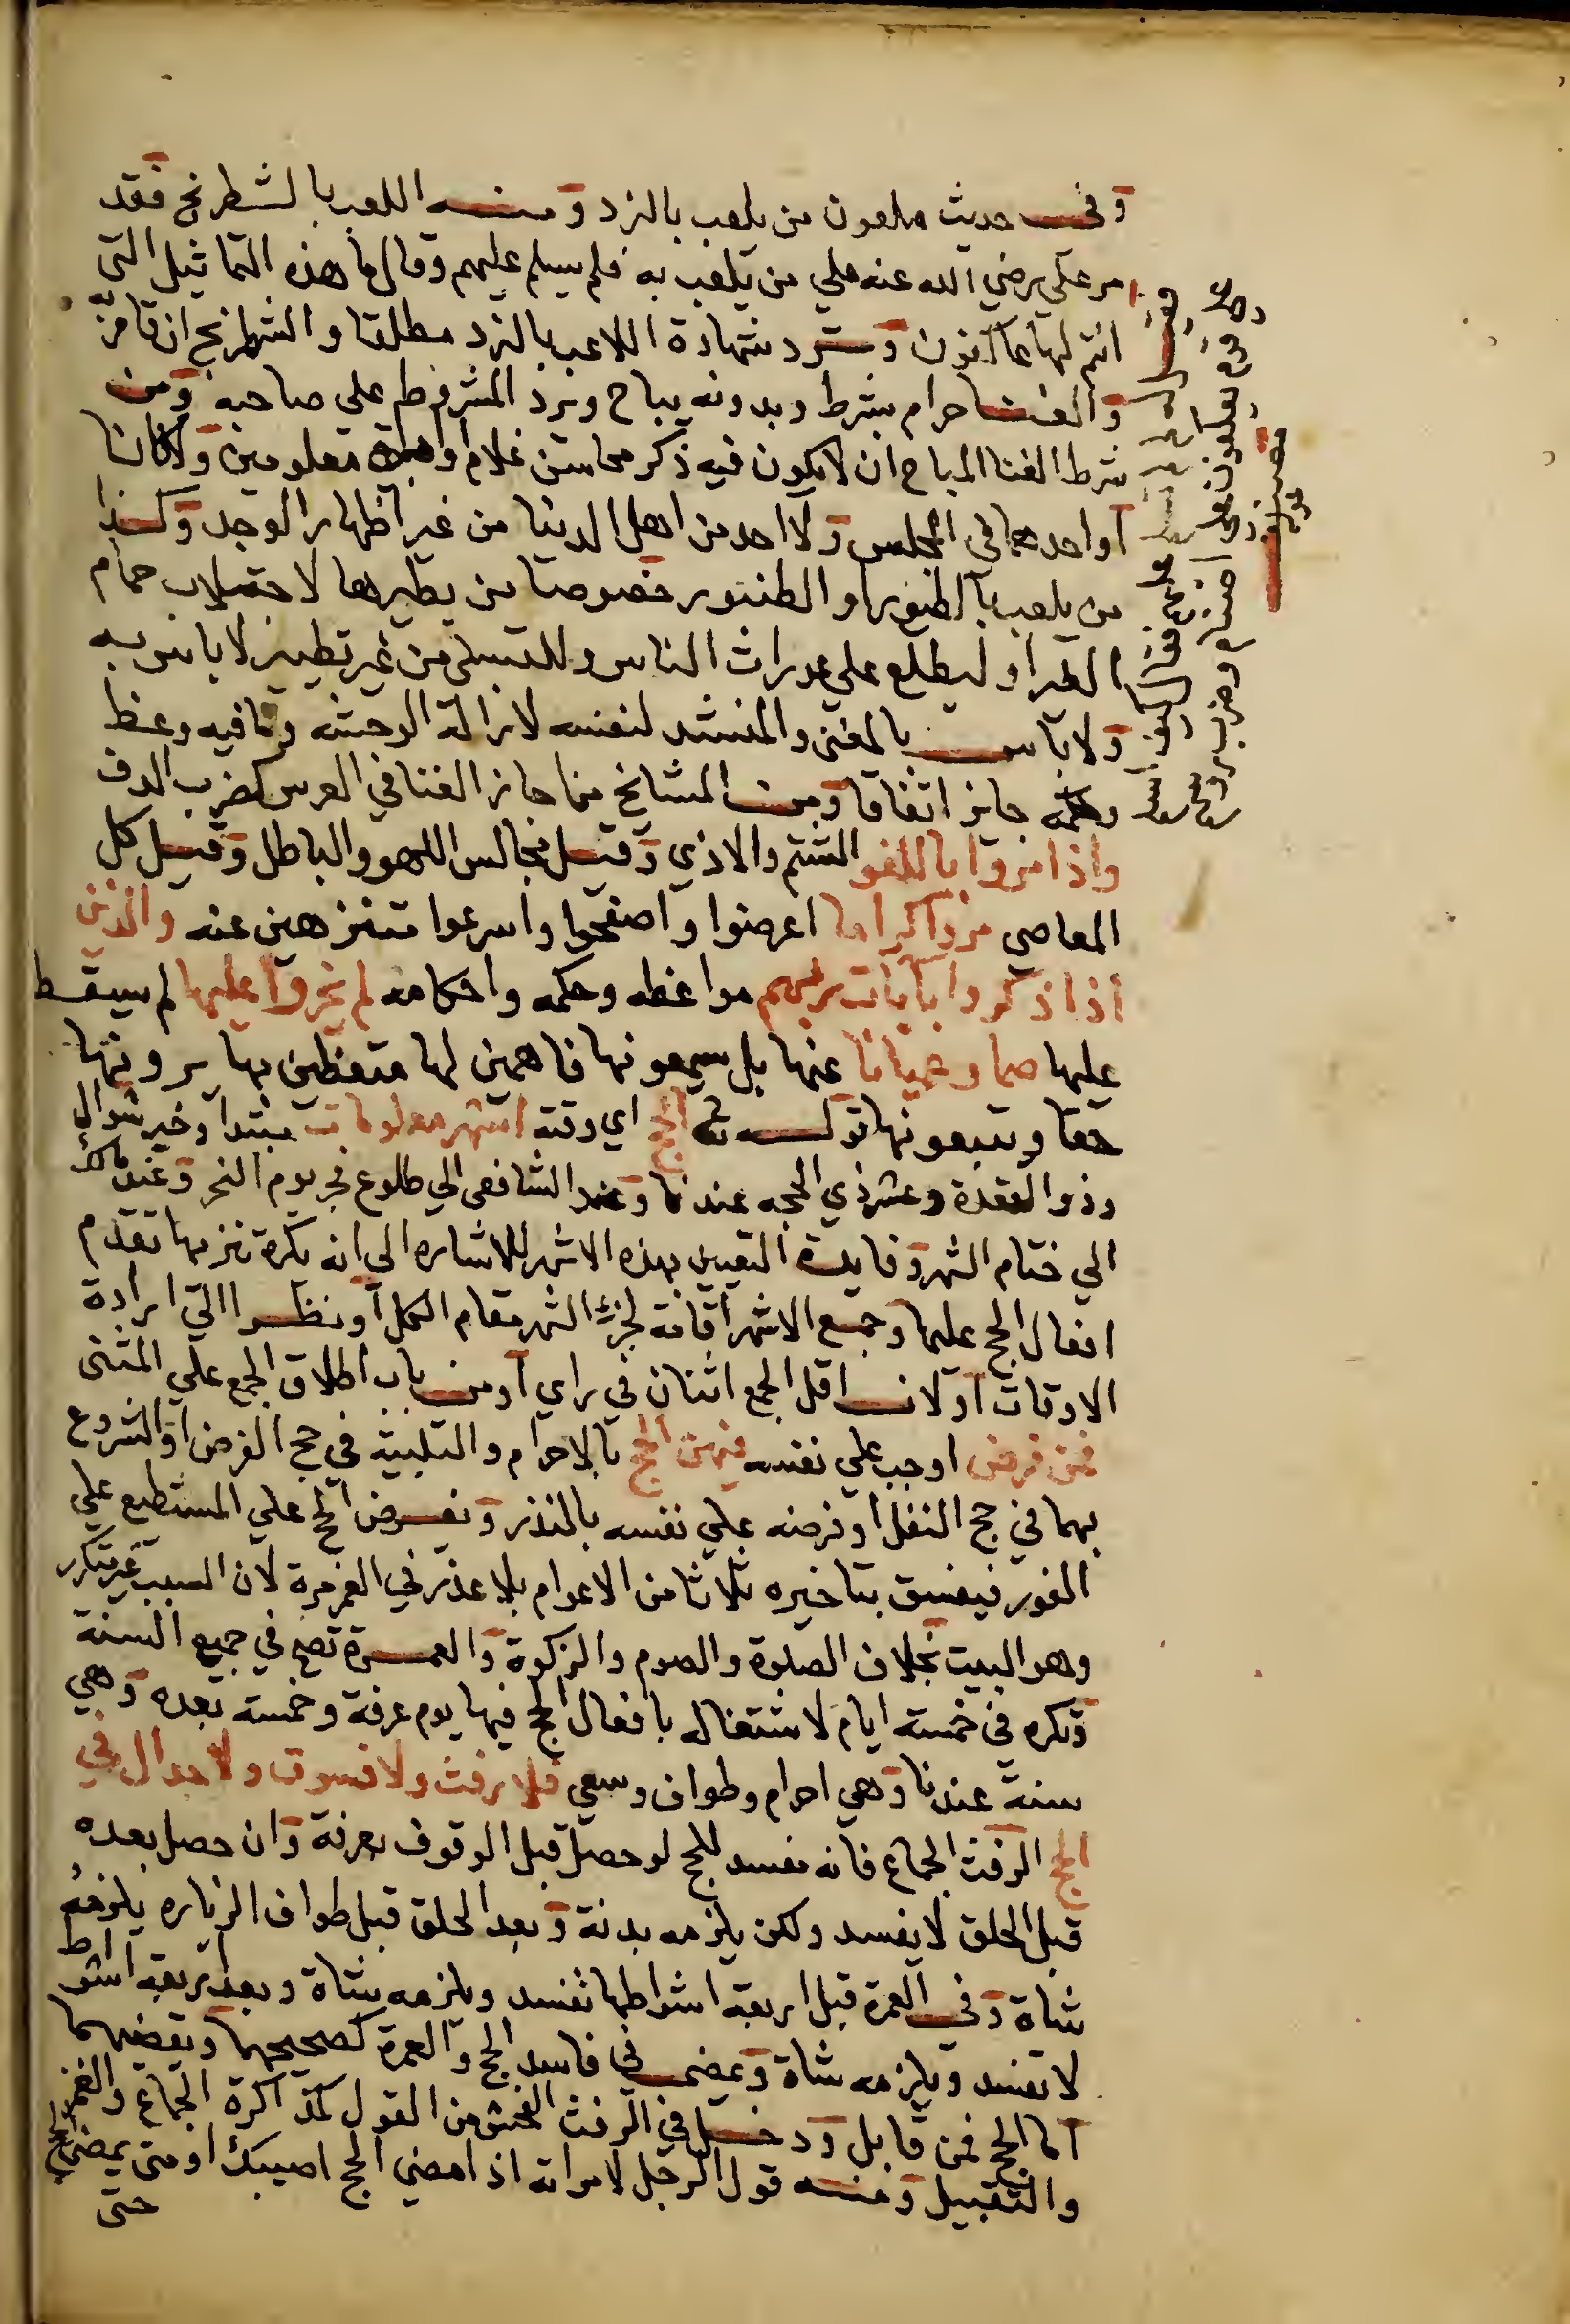 وفي حديث ملعون من يلعب بالنرد ومنه اللعب بالشطرنج فقد
مر علي رضي الله عنه علي من يلعب به فلم يسلم عليهم وقال ما هذه التماثيل التي
انتم لها عاكفون وترد شهادة اللاعب بالنرد مطلقا والشطرنج ان قامر به
والغنا حرام بشرط وبدونه يباح ويرد المشروط علي صاحبه ومن
شرط الغنا المباح ان لا يكون فيه ذكر محاسن غلام وامراة معلومين ولا كانا
او احدهما في المجلس ولا احد من اهل الدنيا من غير اظهار الوجد وكذا
من يلعب بالطيور او الطنبور خصوصا من يطيرها لاجتلاب حمام
الغير او ليطلع علي عورات الناس وللتسلي من غير تطيير لا باس به
ولا باس بالمغني والمنشد لنفسه لازالة الوحشة وما فيه وعظ
وحكمة جايز اتفاقا ومن المشائخ من اجاز الغنا في العرس كضرب الدف
واذا مروا باللغو الشتم والاذي وقيل مجالس اللهو والباطل وقيل كل
المعاصي مروا كراما اعرضوا واصفحوا واسرعوا متنزهين عنه والذين
اذا ذكروا بايات ربهم مواعظه وحكمه واحكامه لم يخروا عليها لم يسقط
عليها صما وعميانا عنها بل يسمعونها فاهمين لها متعظين بها يرونها
حقا ويتبعونها قوله الحج اي وقته اشهر معلومات مبتدا وخبر شوال
وذو القعدة وعشر ذي الحجه عندنا وعند الشافعي الي طلوع فجر يوم النحر وعند مالك
الي ختام الشهر وفايدة التعيين بهذه الاشهر للاشاره الي انه يكره تنزيها تقدم
افعال الحج عليها وجمع الاشهر اقامة لجزء الشهر مقام الكل او نظرا الي ارادة
الاوقات او لان اقل الجمع اثنان في راي او من باب اطلاق الجمع علي المثني
فمن فرض اوجب علي نفسه فيهن الحج بالاحرام والتلبية في حج الفرض او الشروع
بهما في حج النفل او فرضه علي نفسه بالنذر ويفرض الحج علي المستطيع علي
الفور فيفسق بتاخيره ثلاثا من الاعوام بلا عذر في العمر مرة لان السبب غير متكرر
وهو البيت بخلاف الصلوة والصوم والزكوة والعمرة تصح في جميع السنة
وتكره في خمسة ايام لاشتغاله بافعال الحج فيها يوم عرفة وخمسة بعده وهي
سنة عندنا وهي احرام وطواف وسعي فلا رفث ولا فسوق ولا جدال في
الحج الرفث الجماع فانه مفسد للحج لو حصل قبل الوقوف بعرفة وان حصل بعده
قبل الحلق لا يفسد ولكن يلزمه بدنة وبعد الحلق قبل طواف الزياره يلزمه
شاة وفي العمرة قبل اربعة اشواطها تفسد ويلزمه شاة وبعد اربعة اشواط
لا تفسد ويلزمه شاة ويمضي في فاسد الحج والعمرة كصحيحهما ويقضيهما
اما الحج فمن قابل ودخل في الرفث الفحش من القول كمذاكرة الجماع والغمز
والتقبيل ومنه قول الرجل لامراته اذا مضي الحج اصيبك او متي يمضي الحج
حتي